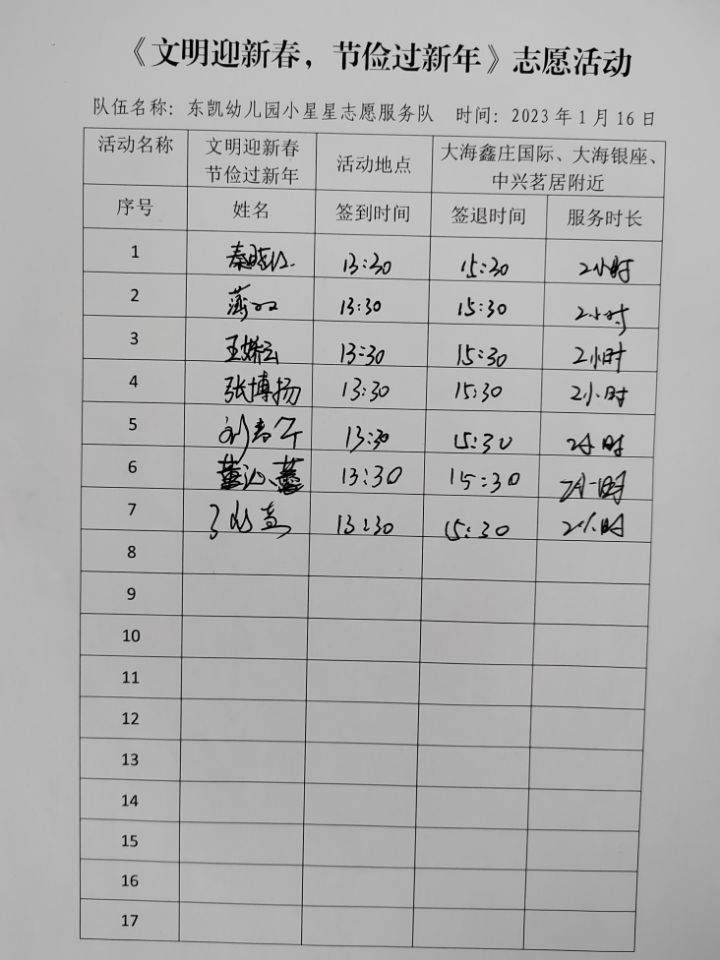 《文明迎新春，节俭过新年》志愿活动
队伍名称：东凯幼儿园小星星志愿服务队 时间：2023年1月16日
活动名称 文明迎新春 节俭过新年 活动地点 大海鑫庄国际、大海银座、中兴茗居附近
序号 姓名 签到时间 签退时间 服务时长
1 秦晓红 13:30 15:30 2小时
2 13:30 15:30 2小时
3 王娇云 13:30 15:30 2小时
4 张博扬 13:30 15:30 2小时
5 13:30 15:30 2小时
6 13:30 15:30 2小时
7 13:30 15:30 2小时
8
9
10
11
12
13
14
15
16
17